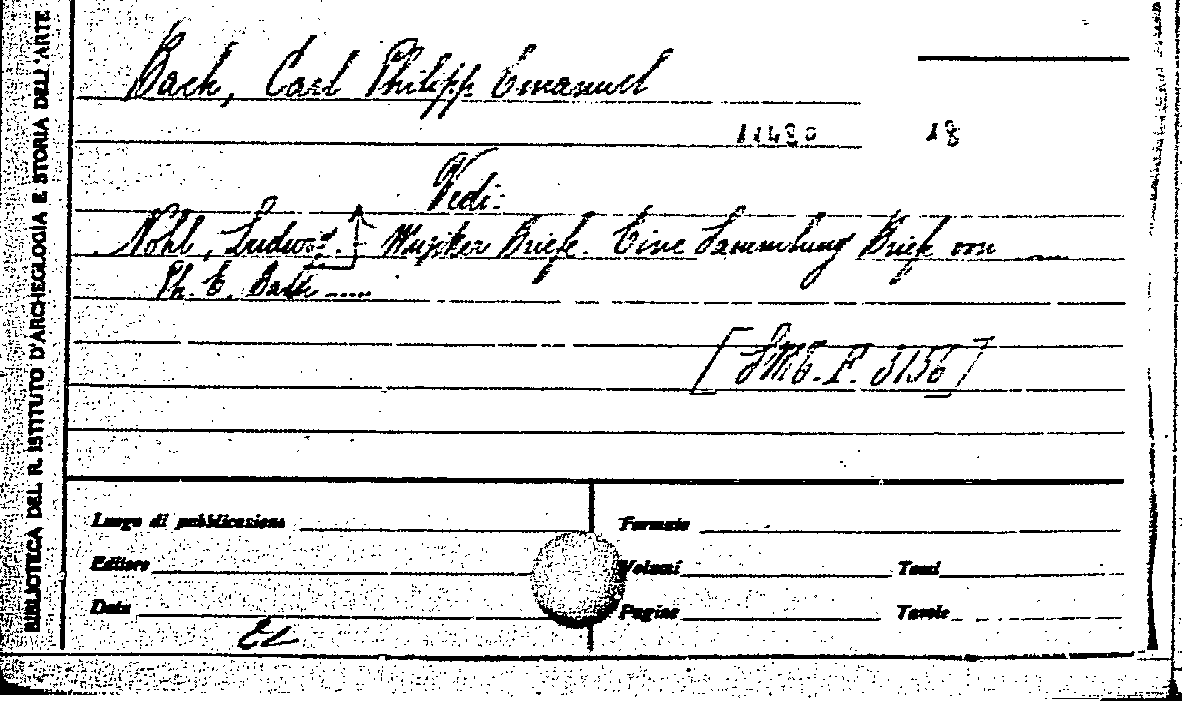 BIBLIOTECA DEL R. ISTITUTO D'ARCHEOLOGIA E STORIA DELL'ARTE
Bach, Carl Philipp Emanuel
18
Vedi:
Nohl, Ludwig. - Musiker Briefe. Eine Sammlung Briefe von ....
Ph. E. Bach .....
Luogo di pubblicazione
Formato
Editore
Volumi
Tomi
Data
Pagine
Tavole